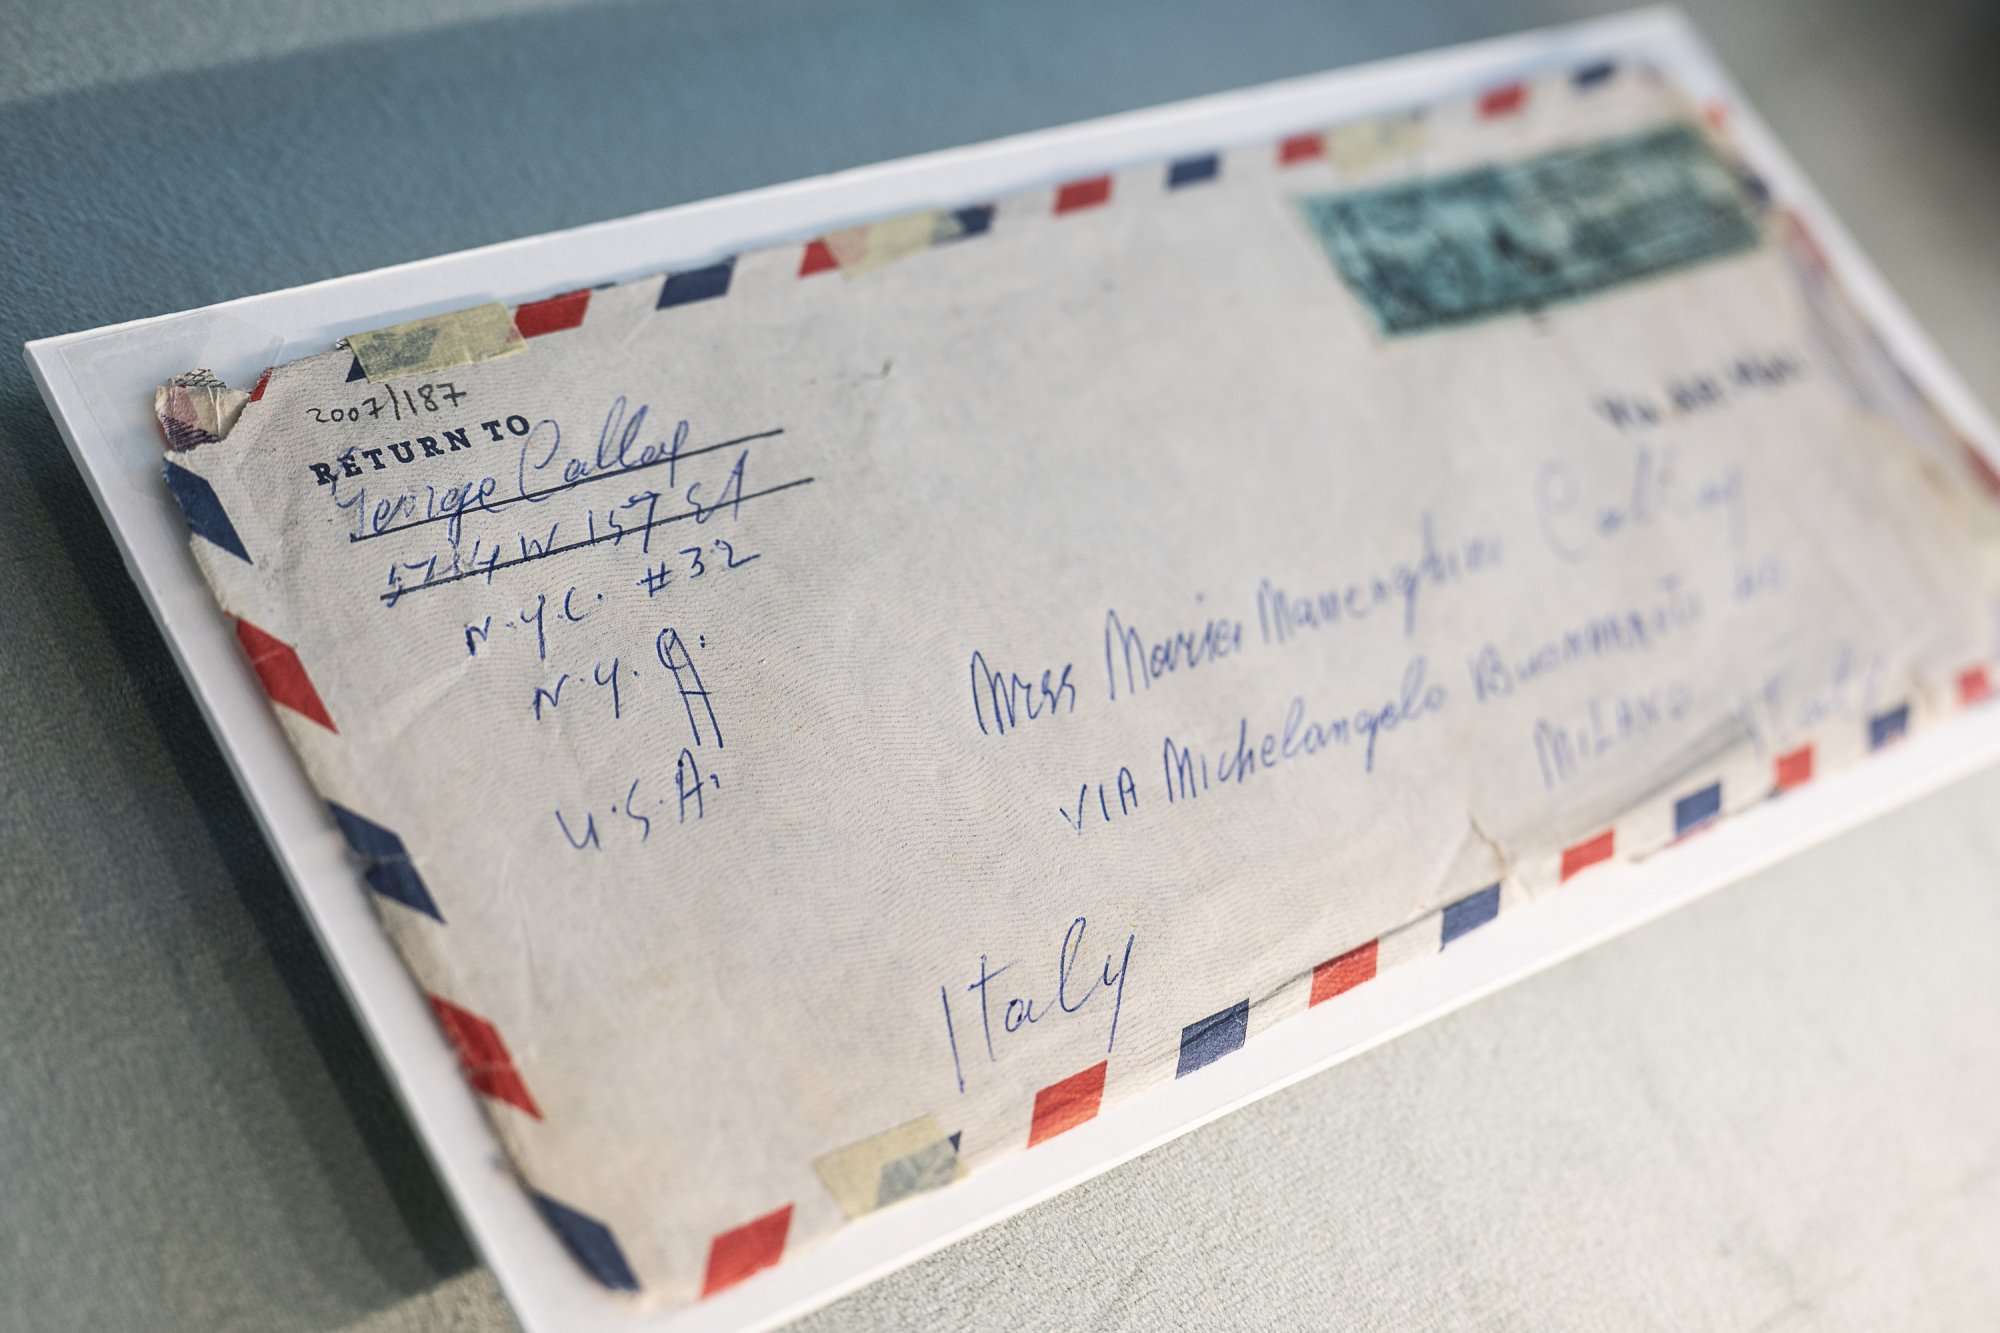 2007/187
RETURN TO
George Callas
W 157 St
N.Y.C. #32
N.Y.
U.S.A.
VIA AIR MAIL
Mrss Maria Meneghini Callas
VIA Michelangelo Buonarroti
MILANO Italy
Italy